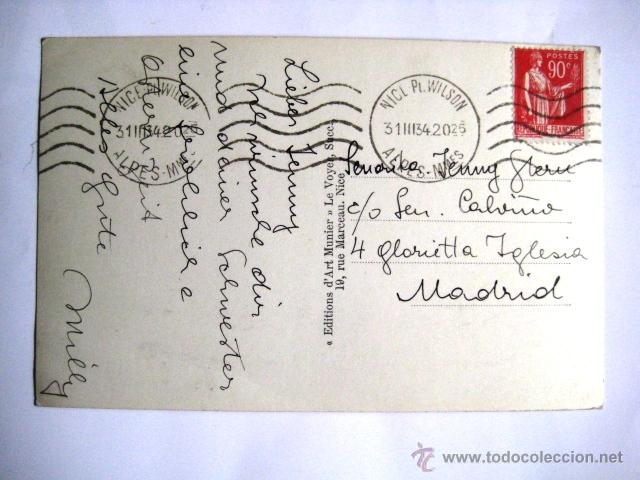 Liebe Jenny
Ich wünsche dir
und deiner Schwester
eine fröhliche
Alles Gute
Milly
« Editions d'Art Munier » Le Voyer, Succ.
19, rue Marceau. Nice
NICE Pl. WILSON
31 III 34 20 25
ALPES-MMES
NICE Pl. WILSON
31 III 34 20 25
ALPES-MMES
POSTES
90c
REPUBLIQUE FRANCAISE
Señorita Jenny Stern
c/o Sen. Calviño
4 Glorietta Iglesia
Madrid
todocoleccion
www.todocoleccion.net